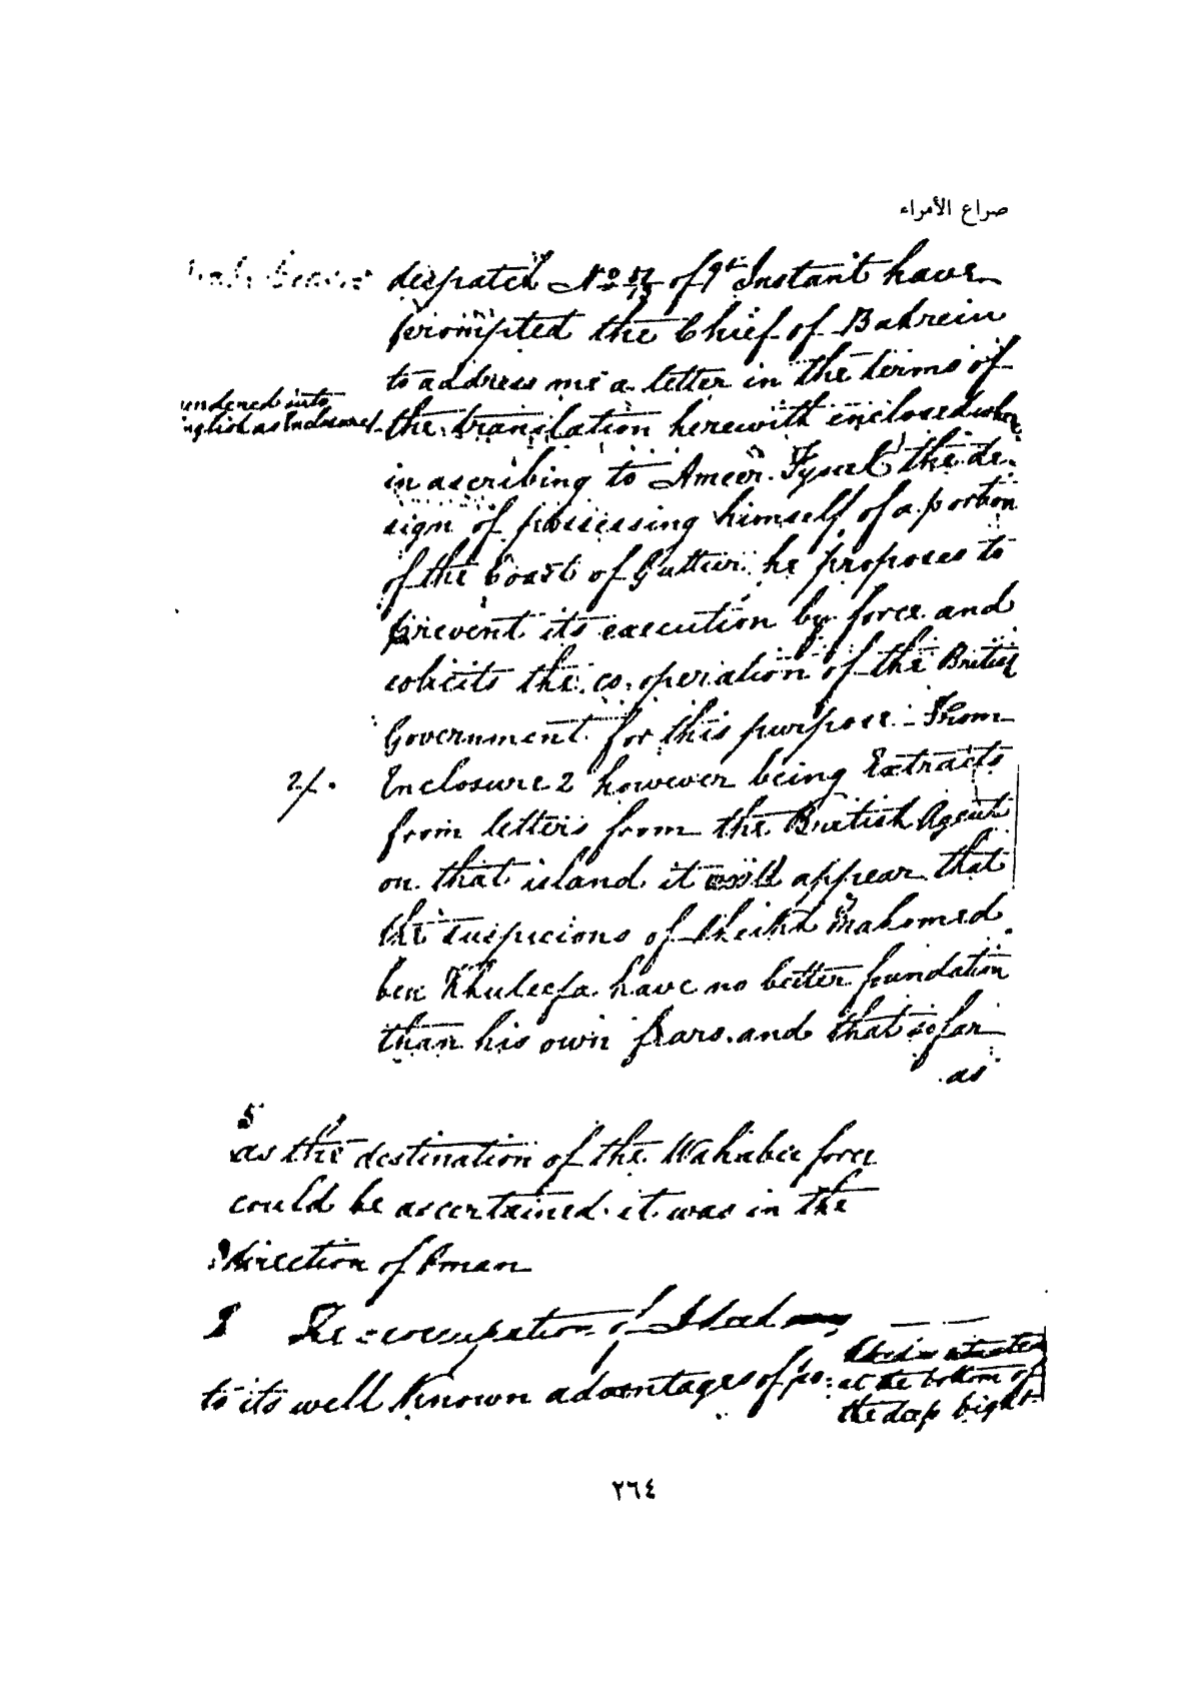 صراع الأمراء
despatch No of 9th Instant have
prompted the Chief of Bahrein
to address me a letter in the terms of
the translation herewith enclosed
in ascribing to Ameer Fysul the de-
sign of possessing himself of a portion
of the Coast of Guttur he proposes to
prevent its execution by force and
solicits the co. operation of the British
Government for this purpose - From
2/.
Enclosure 2 however being Extracts
from letters from the British Agent
on that island it would appear that
the suspicions of Sheikh Mahomed
ben Khuleefa have no better foundation
than his own fears and that so far
as
5
as the destination of the Wahabee force
could be ascertained it was in the
direction of Oman
The occupation of
to its well known advantages of
at the bottom of
the deep bight
٢٦٤